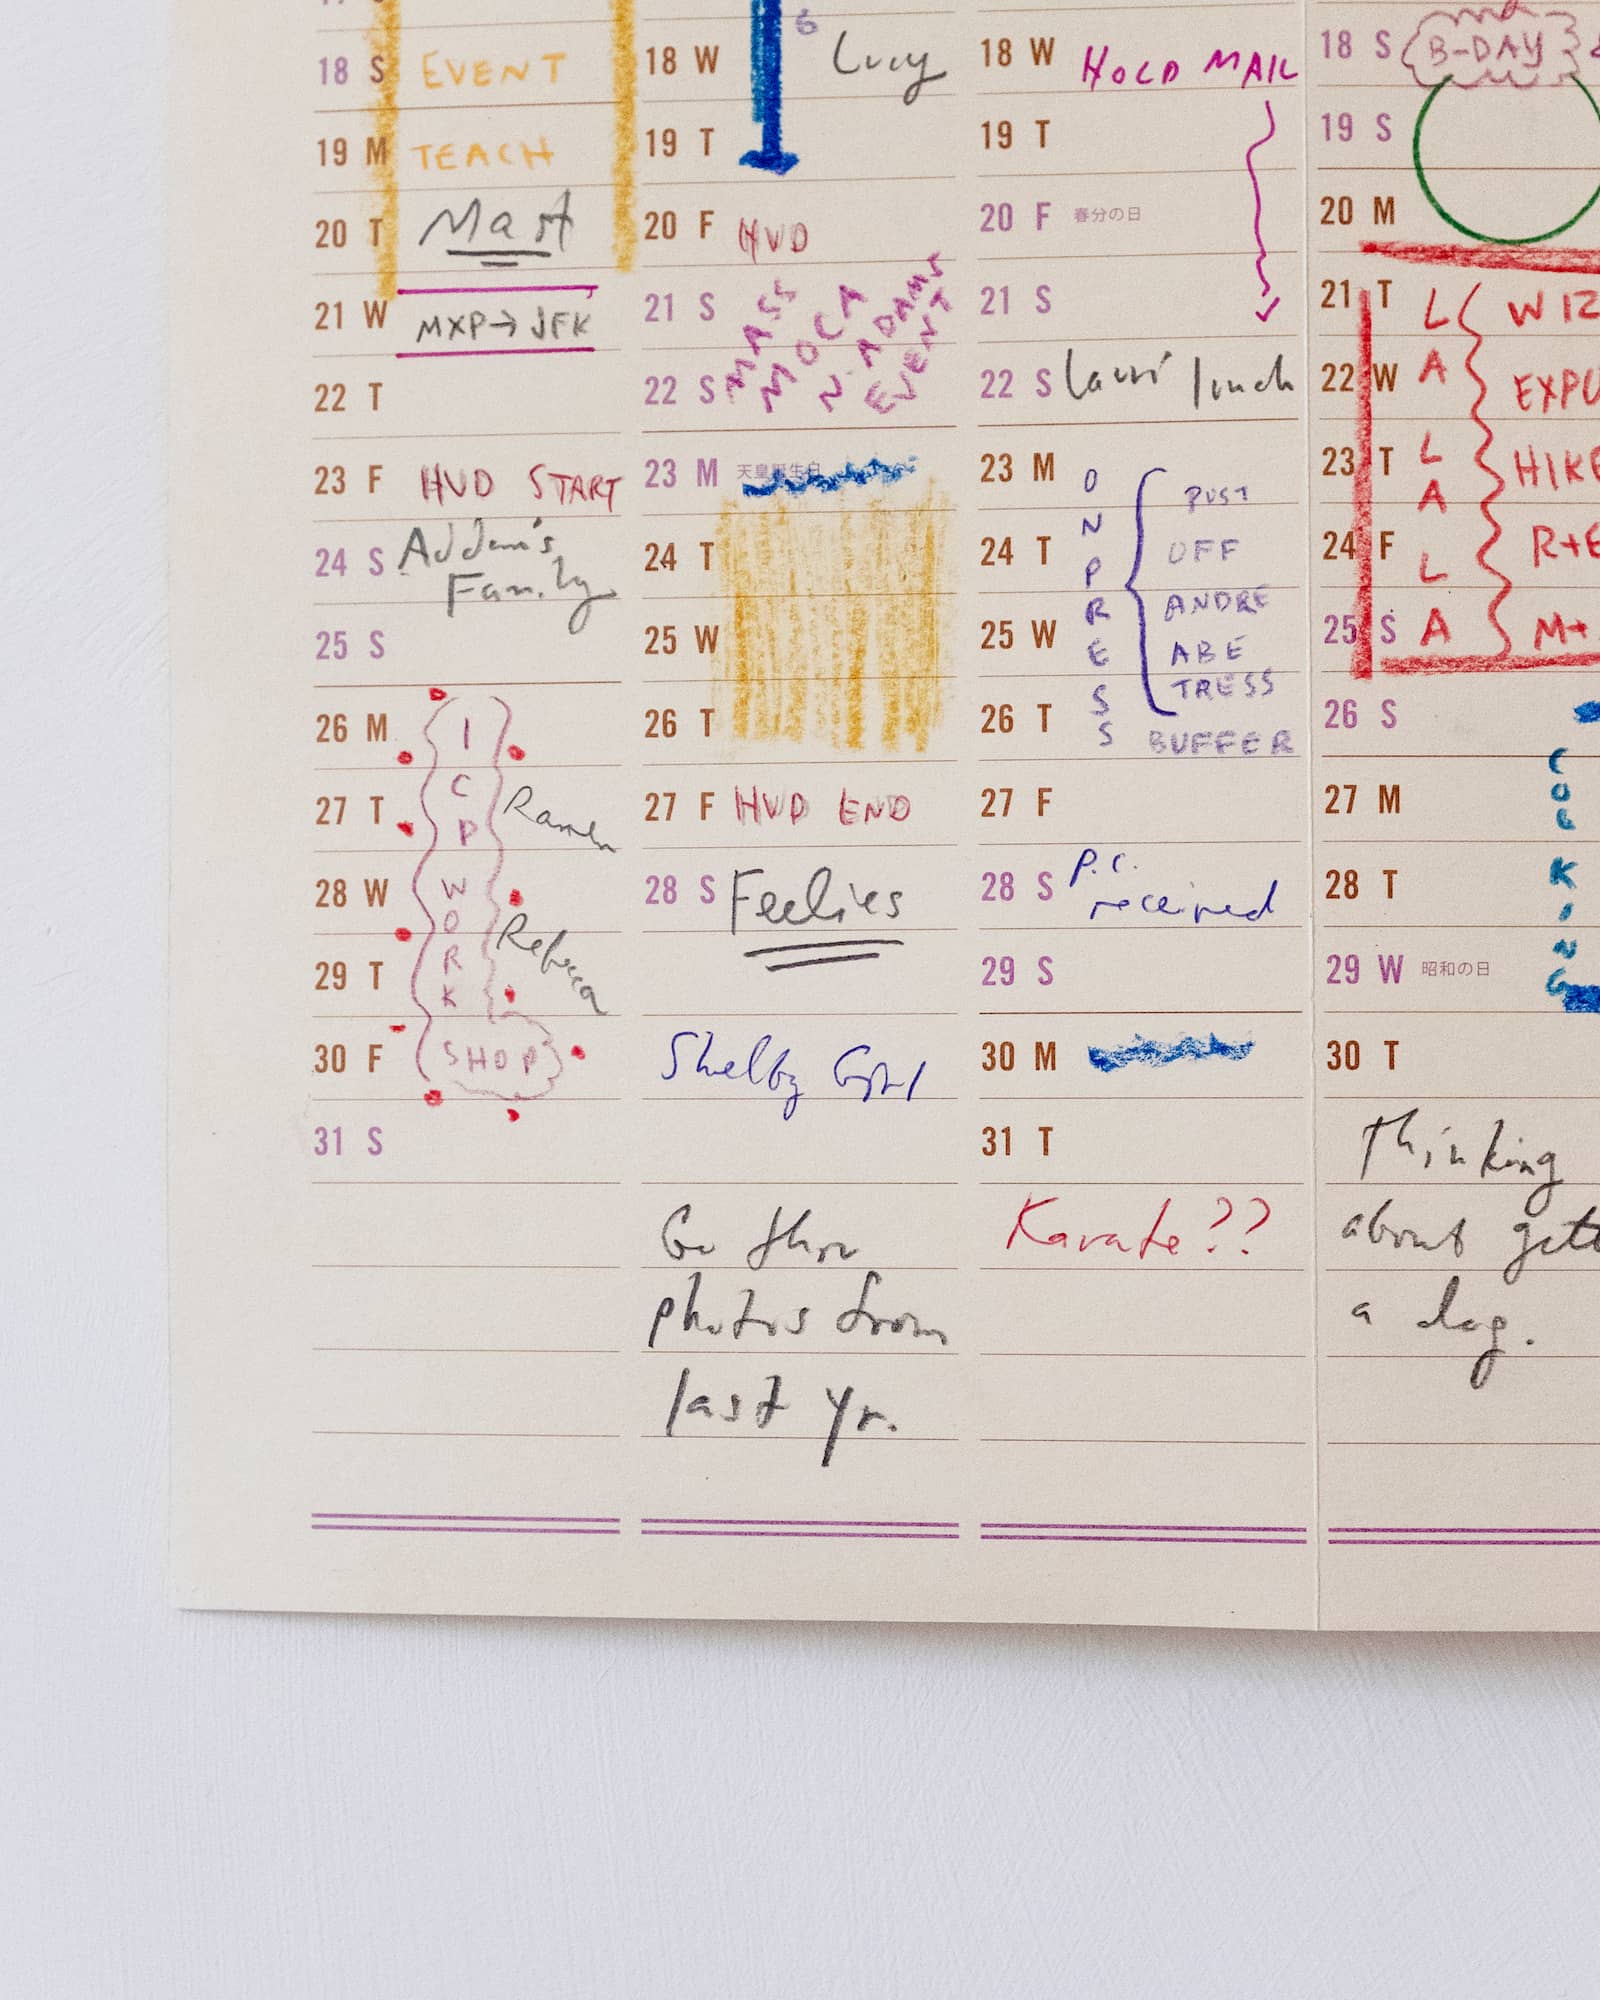 18 S EVENT
19 M TEACH
20 T Mast
21 W MXP→JFK
22 T
23 F HVD START
24 S Addam's
Family
25 S
26 M I
C
27 T P Ramen
28 W W
O Rebecca
R
29 T K
30 F SHOP
31 S
18 W Lucy
19 T
20 F HVD
21 S MASS
MOCA
N. ADAMS
22 S EVENT
23 M 天皇誕生日
24 T
25 W
26 T
27 F HVD END
28 S Feelies
Shelby
Go thru
photos from
last yr.
18 W HOLD MAIL
19 T
20 F 春分の日
21 S
22 S lunch
23 M ON PRESS PUST
24 T OFF
ANDRE
25 W ABE
TRESS
26 T BUFFER
27 F
28 S P.C.
received
29 S
30 M
31 T
Karate??
18 S B-DAY
19 S
20 M
21 T LA LALLA WIZ
22 W EXPU
23 T HIKE
24 F R+E
25 S M+
26 S
27 M
28 T
29 W 昭和の日
KING
30 T
Thinking
about gett
a dog.